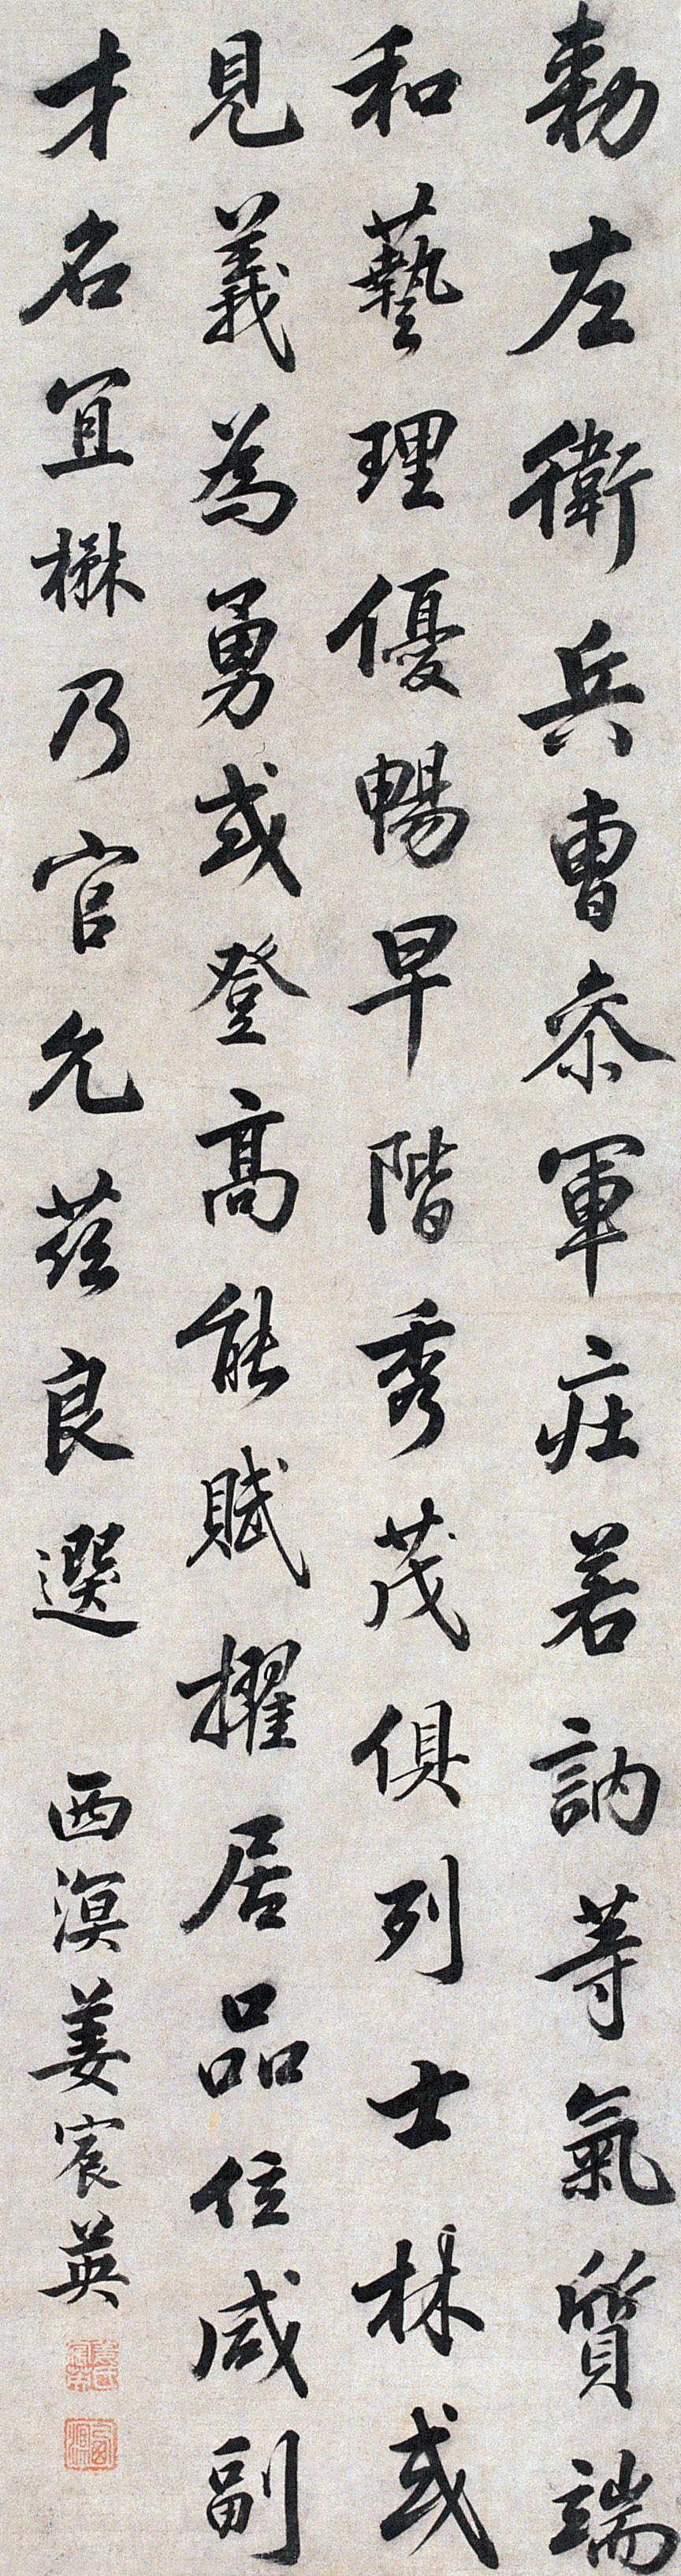 勅左衛兵曹叅軍莊若訥等氣質端
和藝理優暢早階秀茂俱列士林或
見義為勇或登高能賦擢居品位咸副
才名宜楙乃官允茲良選 西溟姜宸英